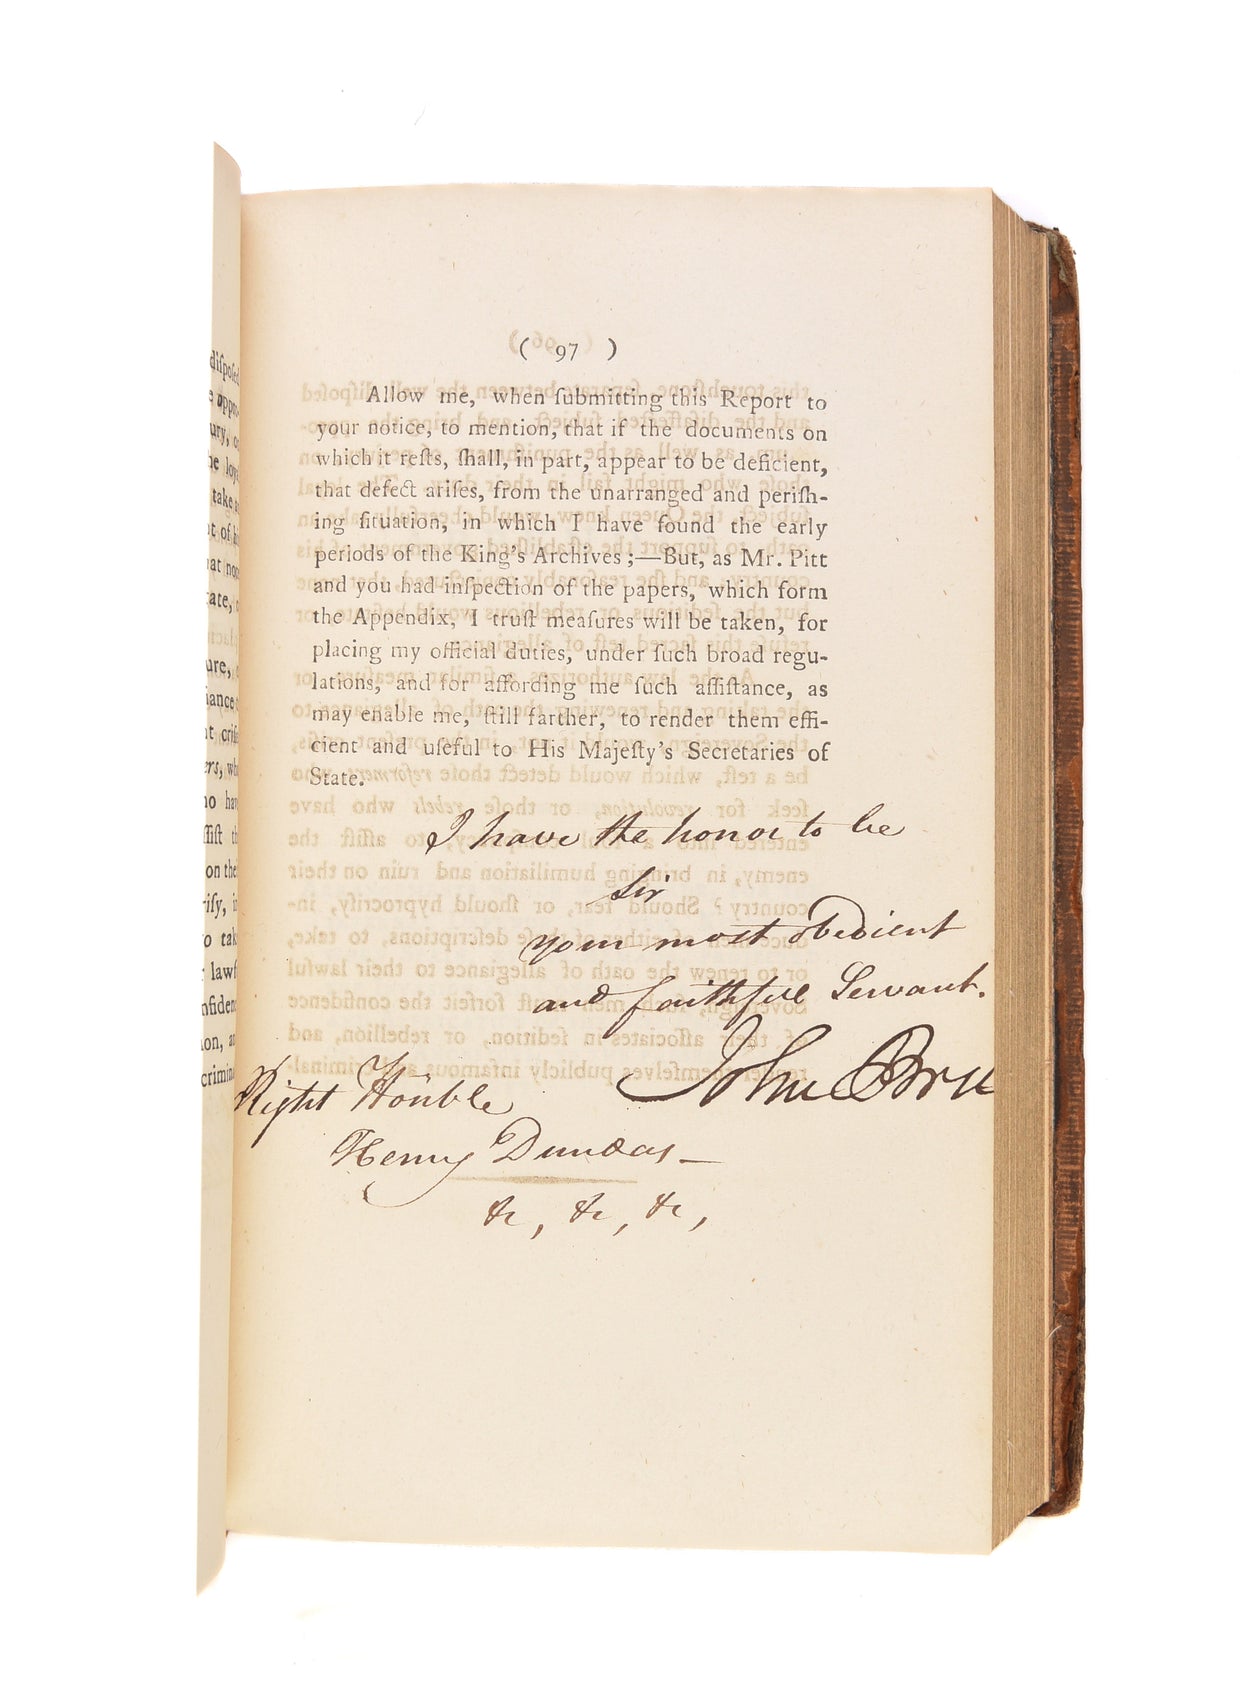 ( 97 )
Allow me, when ſubmitting this Report to
your notice, to mention, that if the documents on
which it reſts, ſhall, in part, appear to be deficient,
that defect ariſes, from the unarranged and periſh-
ing ſituation, in which I have found the early
periods of the King's Archives;—But, as Mr. Pitt
and you had inſpection of the papers, which form
the Appendix, I truſt meaſures will be taken, for
placing my official duties, under ſuch broad regu-
lations, and for affording me ſuch aſſiſtance, as
may enable me, ſtill farther, to render them effi-
cient and uſeful to His Majeſty's Secretaries of
State.
I have the honor to be
Sir
your most obedient
and faithful Servant.
John Bru
Right Honble
Henry Dundas —
&c, &c, &c,